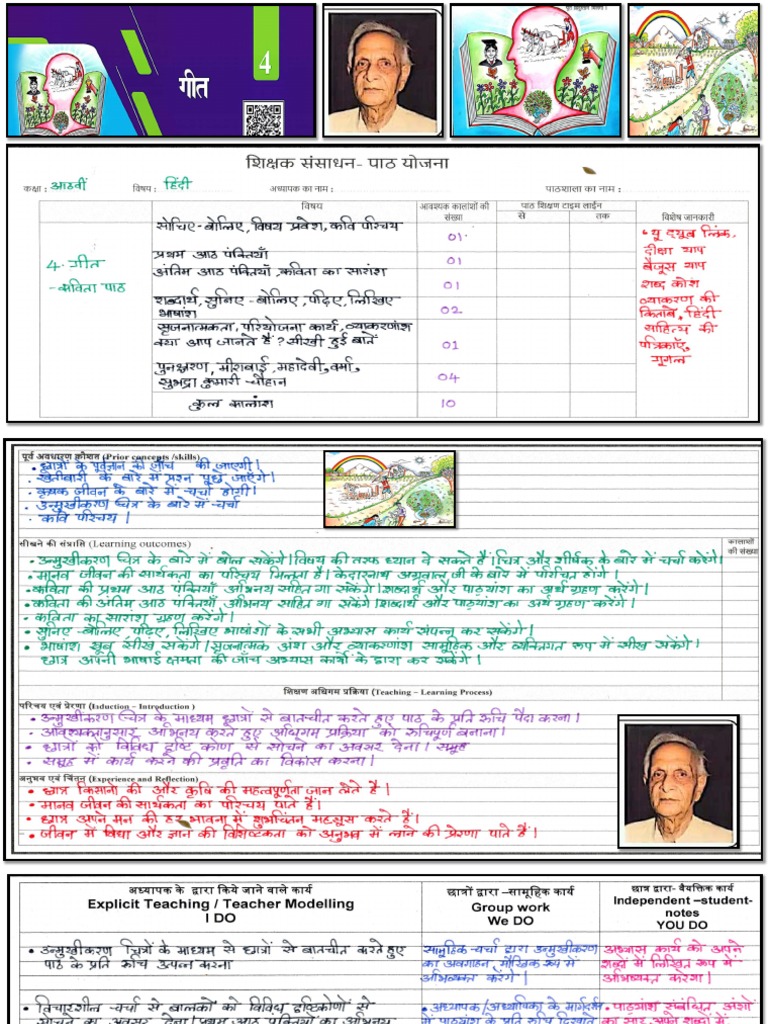 गीत
4
शिक्षक संसाधन- पाठ योजना
कक्षा : आठवीं विषय : हिंदी अध्यापक का नाम : पाठशाला का नाम :
विषय
आवश्यक कालांशों की संख्या
पाठ शिक्षण टाइम लाईन
से तक
विशेष जानकारी
4. गीत
- कविता पाठ
सोचिए-बोलिए, विषय प्रवेश, कवि परिचय 01.
प्रथम आठ पंक्तियाँ 01
अंतिम आठ पंक्तियाँ, कविता का सारांश 01
शब्दार्थ, सुनिए-बोलिए, पढ़िए, लिखिए
भाषांश 02
सृजनात्मकता, परियोजना कार्य, व्याकरणांश
क्या आप जानते हैं? सीखी हुई बातें 01
पुनश्चरण, मीराबाई, महादेवी वर्मा,
सुभद्रा कुमारी चौहान 04
कुल कालांश 10
यू ट्यूब लिंक,
दीक्षा याप
बैजूस याप
शब्द कोश
व्याकरण की
किताबें, हिंदी
साहित्य की
पत्रिकाएँ,
गूगल
पूर्व अवधारण कौशल (Prior concepts /skills)
• छात्रों के पूर्वज्ञान की जाँच की जाएगी।
• खेतीबारी के बारे में प्रश्न पूछे जाएँगे।
• कृषक जीवन के बारे में चर्चा होगी।
• उन्मुखीकरण चित्र के बारे में चर्चा
• कवि परिचय।
सीखने की संप्राप्ति (Learning outcomes)
कालांशों की संख्या
• उन्मुखीकरण चित्र के बारे में बोल सकेंगे। विषय की तरफ ध्यान दे सकते हैं। चित्र और शीर्षक के बारे में चर्चा करेंगे।
• मानव जीवन की सार्थकता का परिचय मिलता है। केदारनाथ अग्रवाल जी के बारे में परिचित होंगे।
• कविता की प्रथम आठ पंक्तियाँ अभिनय सहित गा सकेंगे। शब्दार्थ और पाठ्यांश का अर्थ ग्रहण करेंगे।
• कविता की अंतिम आठ पंक्तियाँ, अभिनय सहित गा सकेंगे। शिब्दार्थ और पाठ्यांश का अर्थ ग्रहण करेंगे।
• कविता का सारांश ग्रहण करेंगे।
• सुनिए-बोलिए, पढ़िए, लिखिए भाषांशों के सभी अभ्यास कार्य संपन्न कर सकेंगे।
• भाषांश खूब सीख सकेंगे। सृजनात्मक अंश और व्याकरणांश सामूहिक और व्यक्तिगत रूप में सीख सकेंगे।
छात्र अपनी भाषाई क्षमता की जाँच अभ्यास कार्यों के द्वारा कर सकेंगे।
शिक्षण अधिगम प्रक्रिया (Teaching – Learning Process)
परिचय एवं प्रेरणा (Induction – Introduction )
• उन्मुखीकरण चित्र के माध्यम छात्रों से बातचीत करते हुए पाठ के प्रति रुचि पैदा करना।
• आवश्यकतानुसार अभिनय करते हुए अधिगम प्रक्रिया को रुचिपूर्ण बनाना।
• छात्रों को विविध दृष्टि कोण से सोचने का अवसर देना। समूह
• समूह में कार्य करने की प्रवृति का विकास करना।
अनुभव एवं चिंतन (Experience and Reflection)
• छात्र किसानों की और कृषि की महत्वपूर्णता जान लेते हैं।
• मानव जीवन की सार्थकता का परिचय पाते हैं।
• छात्र अपने मन की हर भावना में शुभचिंतन महसूस करते हैं।
• जीवन में विद्या और ज्ञान की विशिष्टकता को अनुभव में लाने की प्रेरणा पाते हैं।
अध्यापक के द्वारा किये जाने वाले कार्य
Explicit Teaching / Teacher Modelling
I DO
छात्रों द्वारा –सामूहिक कार्य
Group work
We DO
छात्र द्वारा- वैयक्तिक कार्य
Independent –student-
notes
YOU DO
• उन्मुखीकरण चित्रों के माध्यम से छात्रों से बातचीत करते हुए
पाठ के प्रति रुचि उत्पन्न करना
सामूहिक-चर्चा द्वारा उन्मुखीकरण
का अवगाहन, मौखिक रूप में
अभिव्यक्त करेंगे।
अभ्यास कार्य को अपने
शब्दों में लिखित रूप में
अभिव्यक्त करेगा।
• विचारशील चर्चा से बालकों को विविध दृष्टिकोणों से
• अध्यापक/अध्यापिका के मार्गदर्शन
• पाठ्यांश संबंधित अंशों